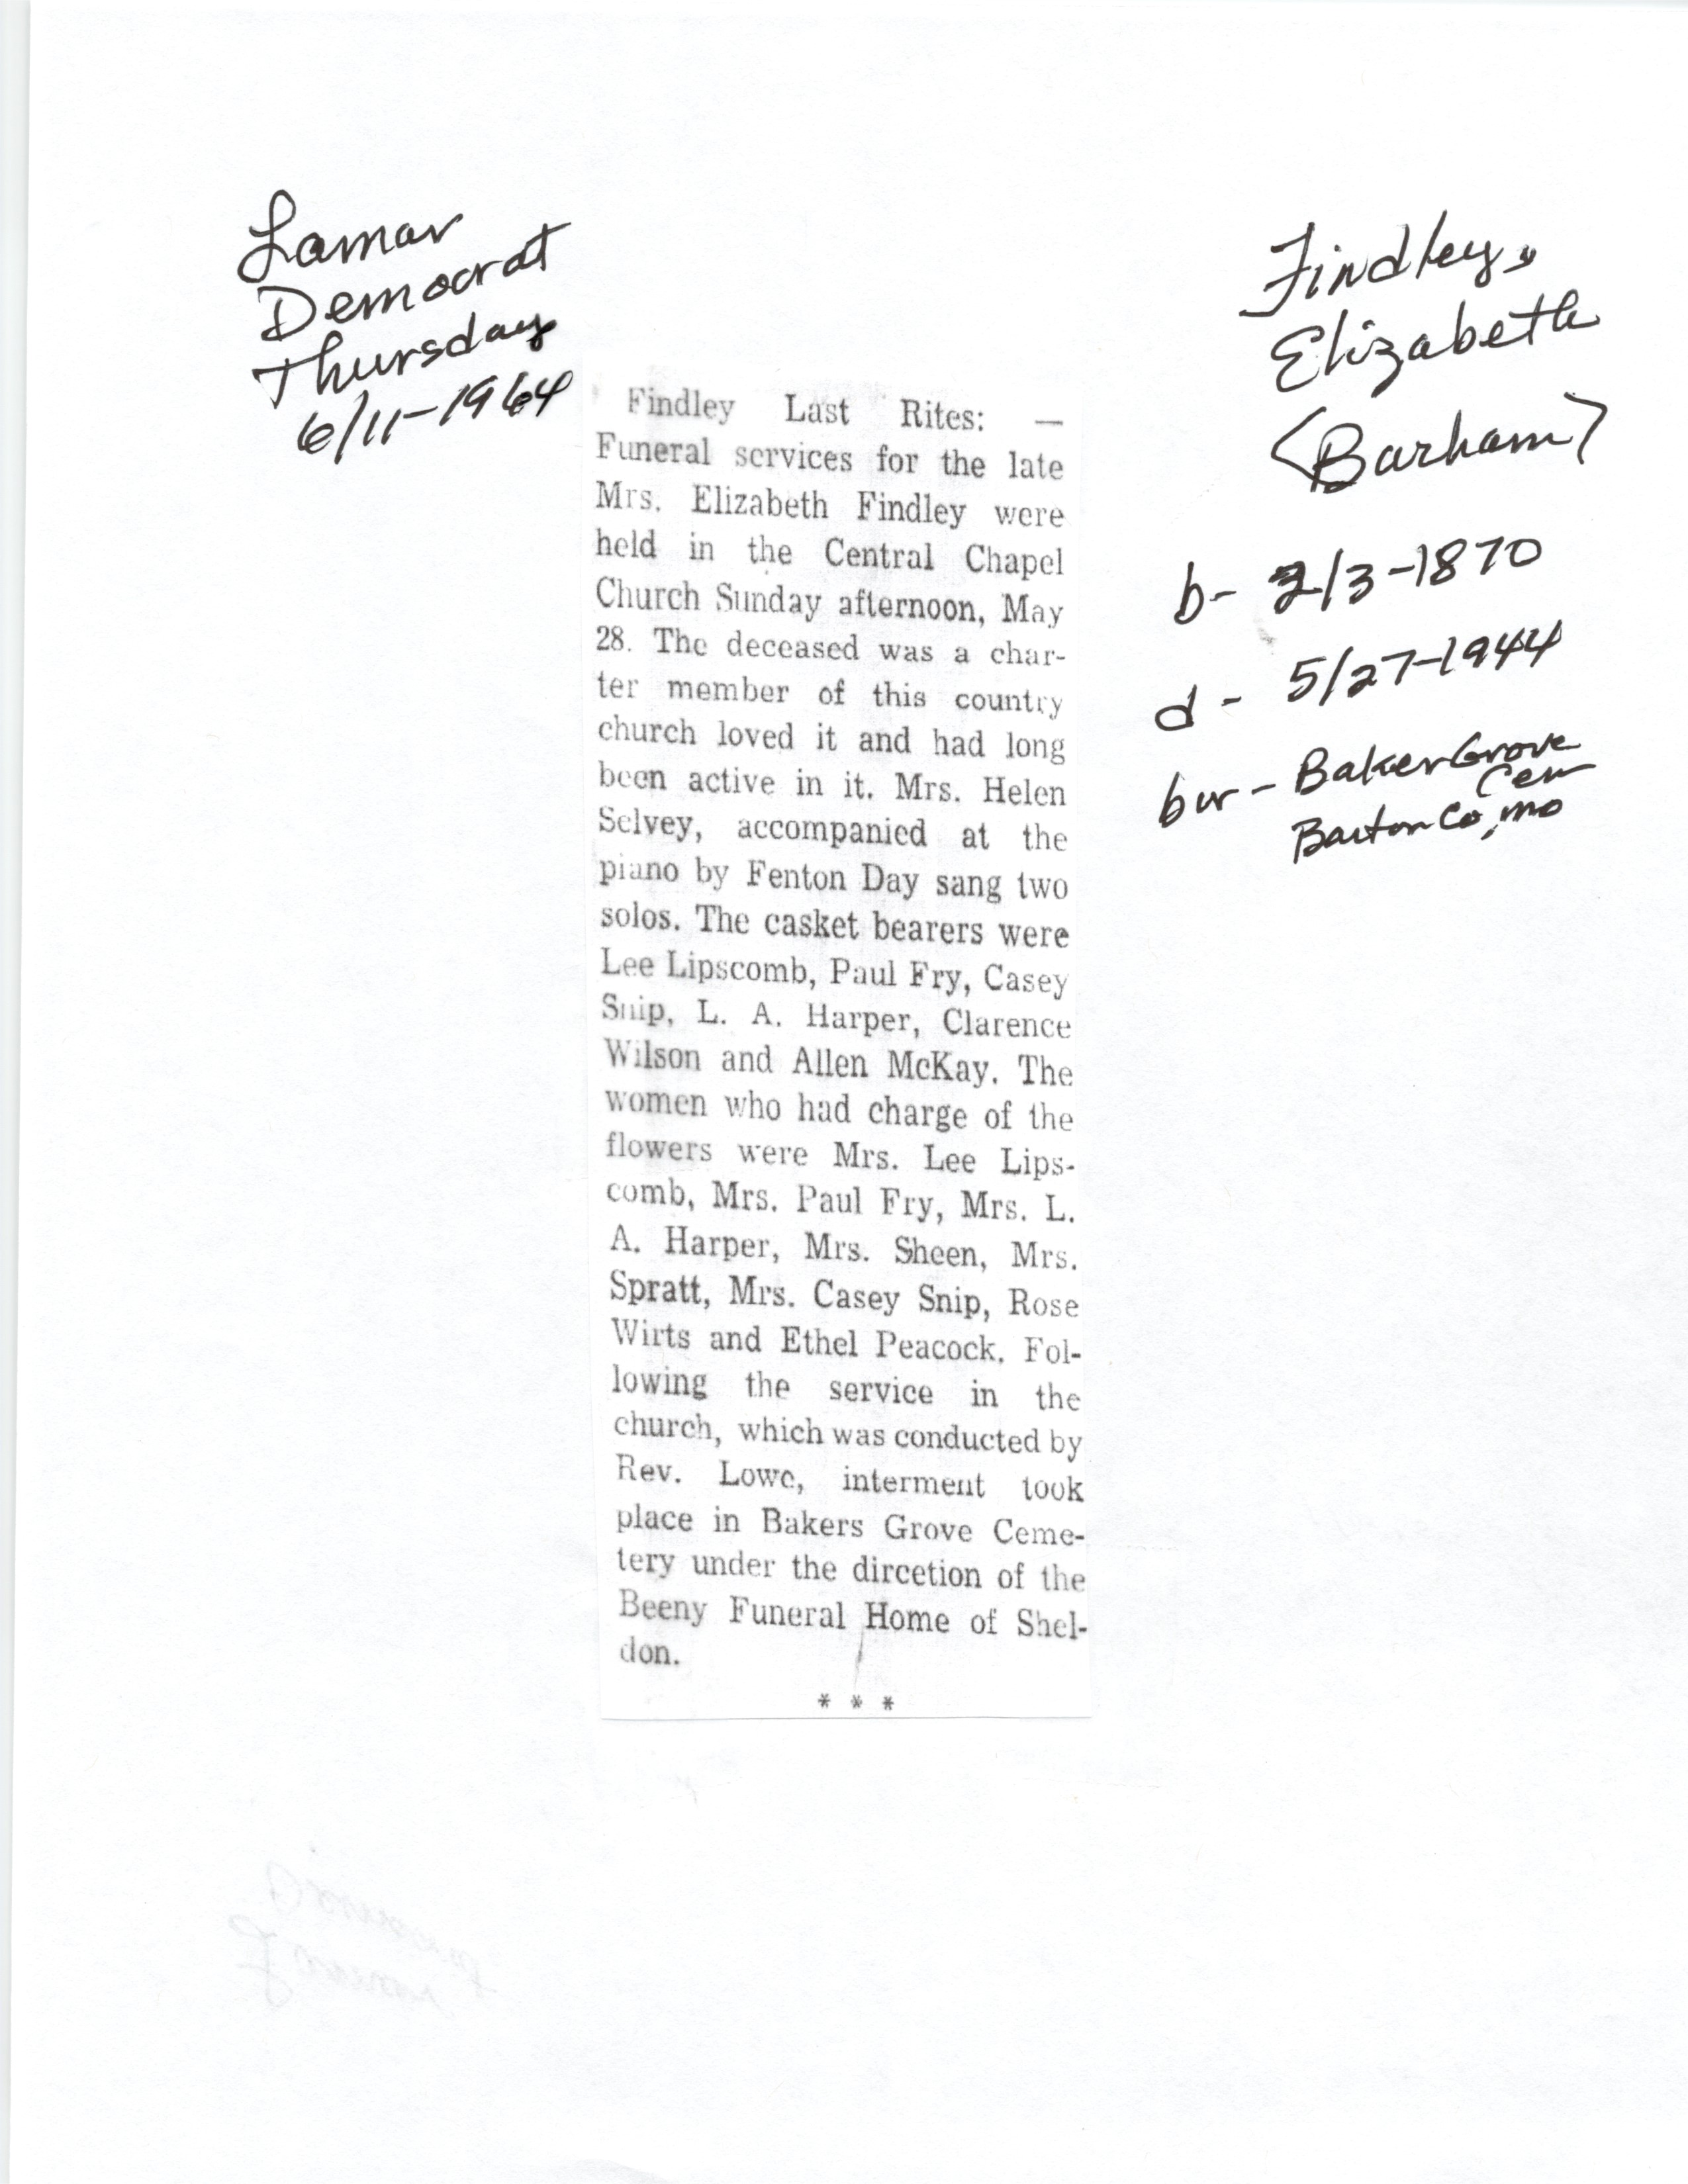 Lamar
Democrat
Thursday
6/11-1964
Findley,
Elizabeth
<Barham>
b- 2/3-1870
d- 5/27-1944
bur- Baker Grove
Cem
Barton Co, Mo
Findley Last Rites: —
Funeral services for the late
Mrs. Elizabeth Findley were
held in the Central Chapel
Church Sunday afternoon, May
28. The deceased was a char-
ter member of this country
church loved it and had long
been active in it. Mrs. Helen
Selvey, accompanied at the
piano by Fenton Day sang two
solos. The casket bearers were
Lee Lipscomb, Paul Fry, Casey
Snip, L. A. Harper, Clarence
Wilson and Allen McKay. The
women who had charge of the
flowers were Mrs. Lee Lips-
comb, Mrs. Paul Fry, Mrs. L.
A. Harper, Mrs. Sheen, Mrs.
Spratt, Mrs. Casey Snip, Rose
Wirts and Ethel Peacock. Fol-
lowing the service in the
church, which was conducted by
Rev. Lowe, interment took
place in Bakers Grove Ceme-
tery under the dircetion of the
Beeny Funeral Home of Shel-
don.
* * *